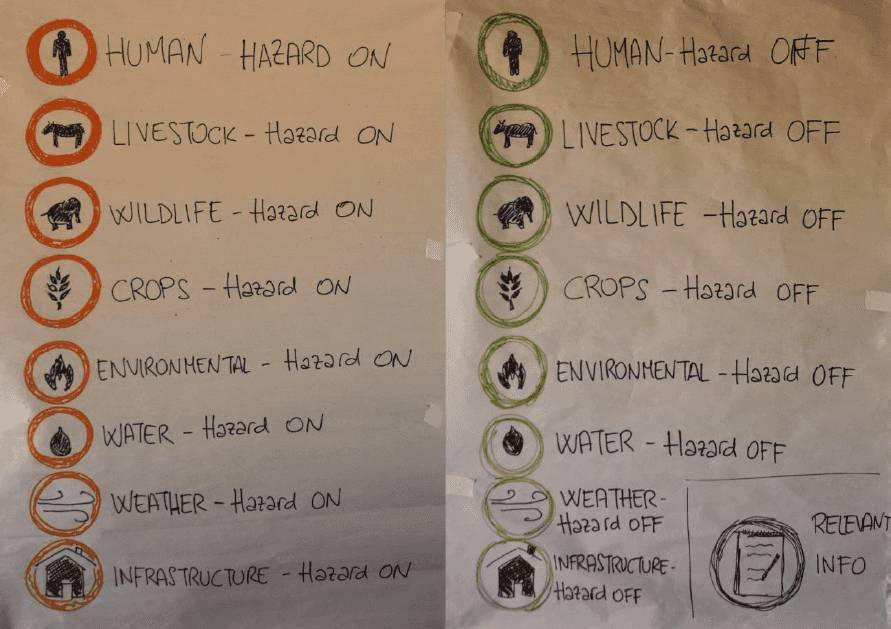 HUMAN - HAZARD ON
LIVESTOCK - Hazard ON
WILDLIFE - Hazard ON
CROPS - Hazard ON
ENVIRONMENTAL - Hazard ON
WATER - Hazard ON
WEATHER - Hazard ON
INFRASTRUCTURE - Hazard ON
HUMAN - Hazard OFF
LIVESTOCK - Hazard OFF
WILDLIFE - Hazard OFF
CROPS - Hazard OFF
ENVIRONMENTAL - Hazard OFF
WATER - Hazard OFF
WEATHER -
Hazard OFF
INFRASTRUCTURE -
Hazard OFF
RELEVANT
INFO